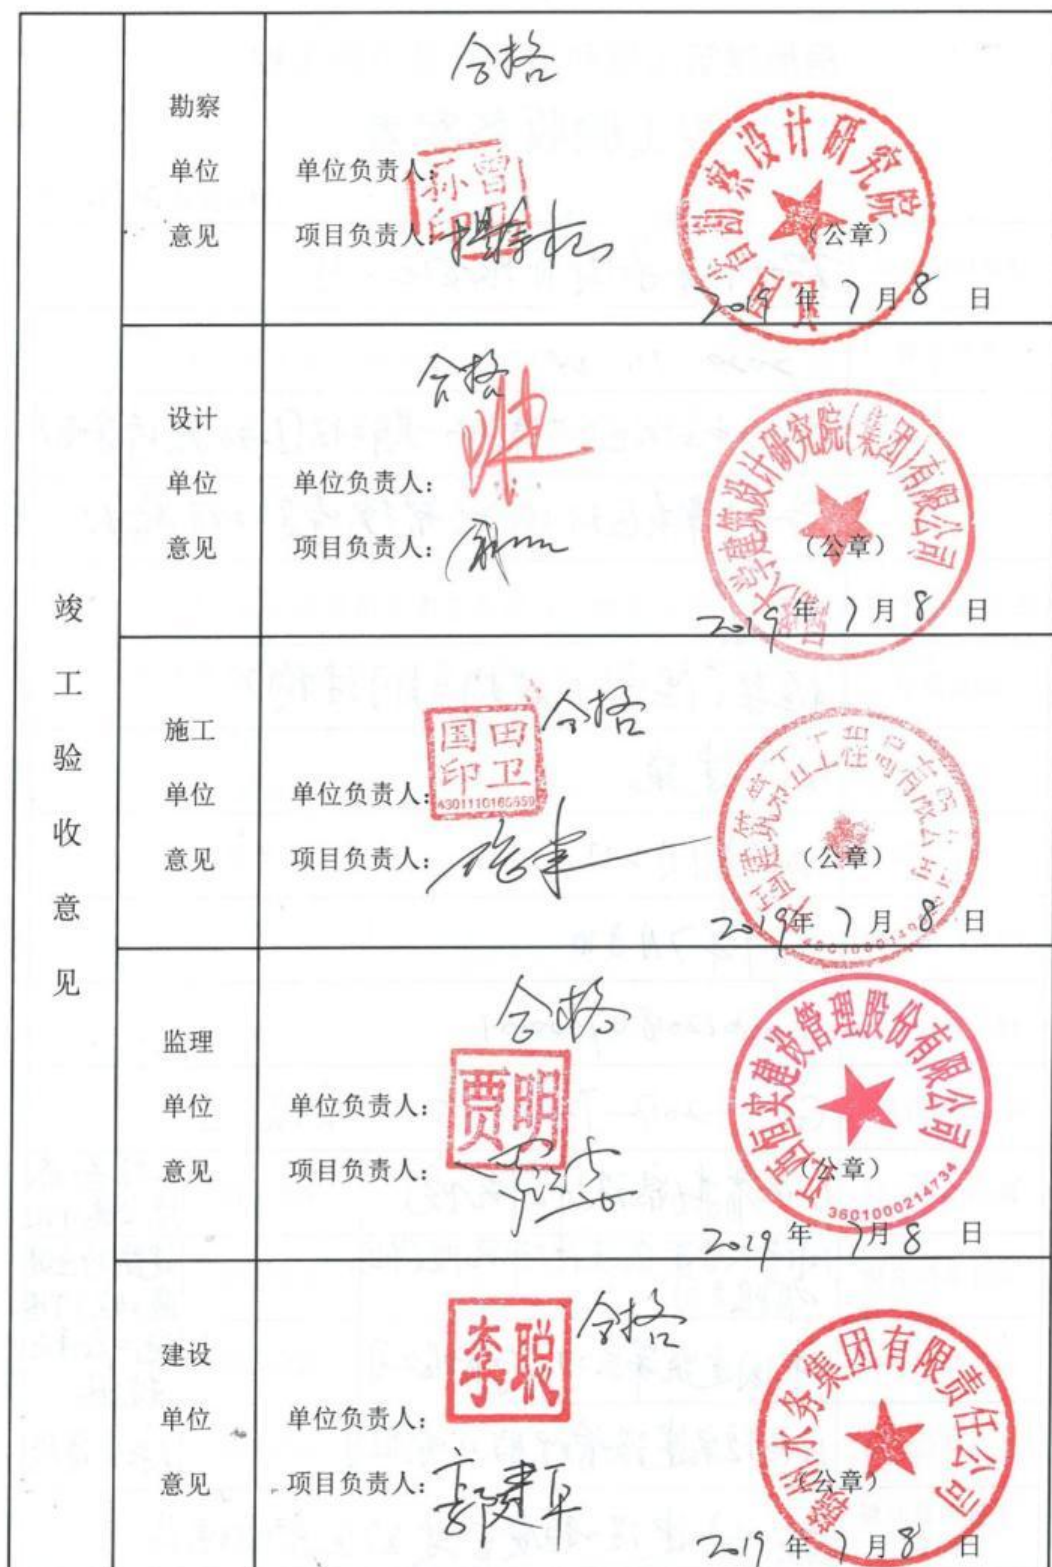 竣工验收意见
勘察单位意见
合格
单位负责人：
项目负责人：
江西省勘察设计研究院
（公章）
2019年7月8日
设计单位意见
合格
单位负责人：
项目负责人：
大学建筑设计研究院(集团)有限公司
（公章）
2019年7月8日
施工单位意见
合格
国田
印卫
单位负责人：
项目负责人：
中国建筑第五工程局有限公司
（公章）
2019年7月8日
监理单位意见
合格
贾明
单位负责人：
项目负责人：
江西恒实建设管理股份有限公司
3601000214734
（公章）
2019年7月8日
建设单位意见
合格
李聪
单位负责人：
项目负责人：郭建军
赣州水务集团有限责任公司
（公章）
2019年7月8日